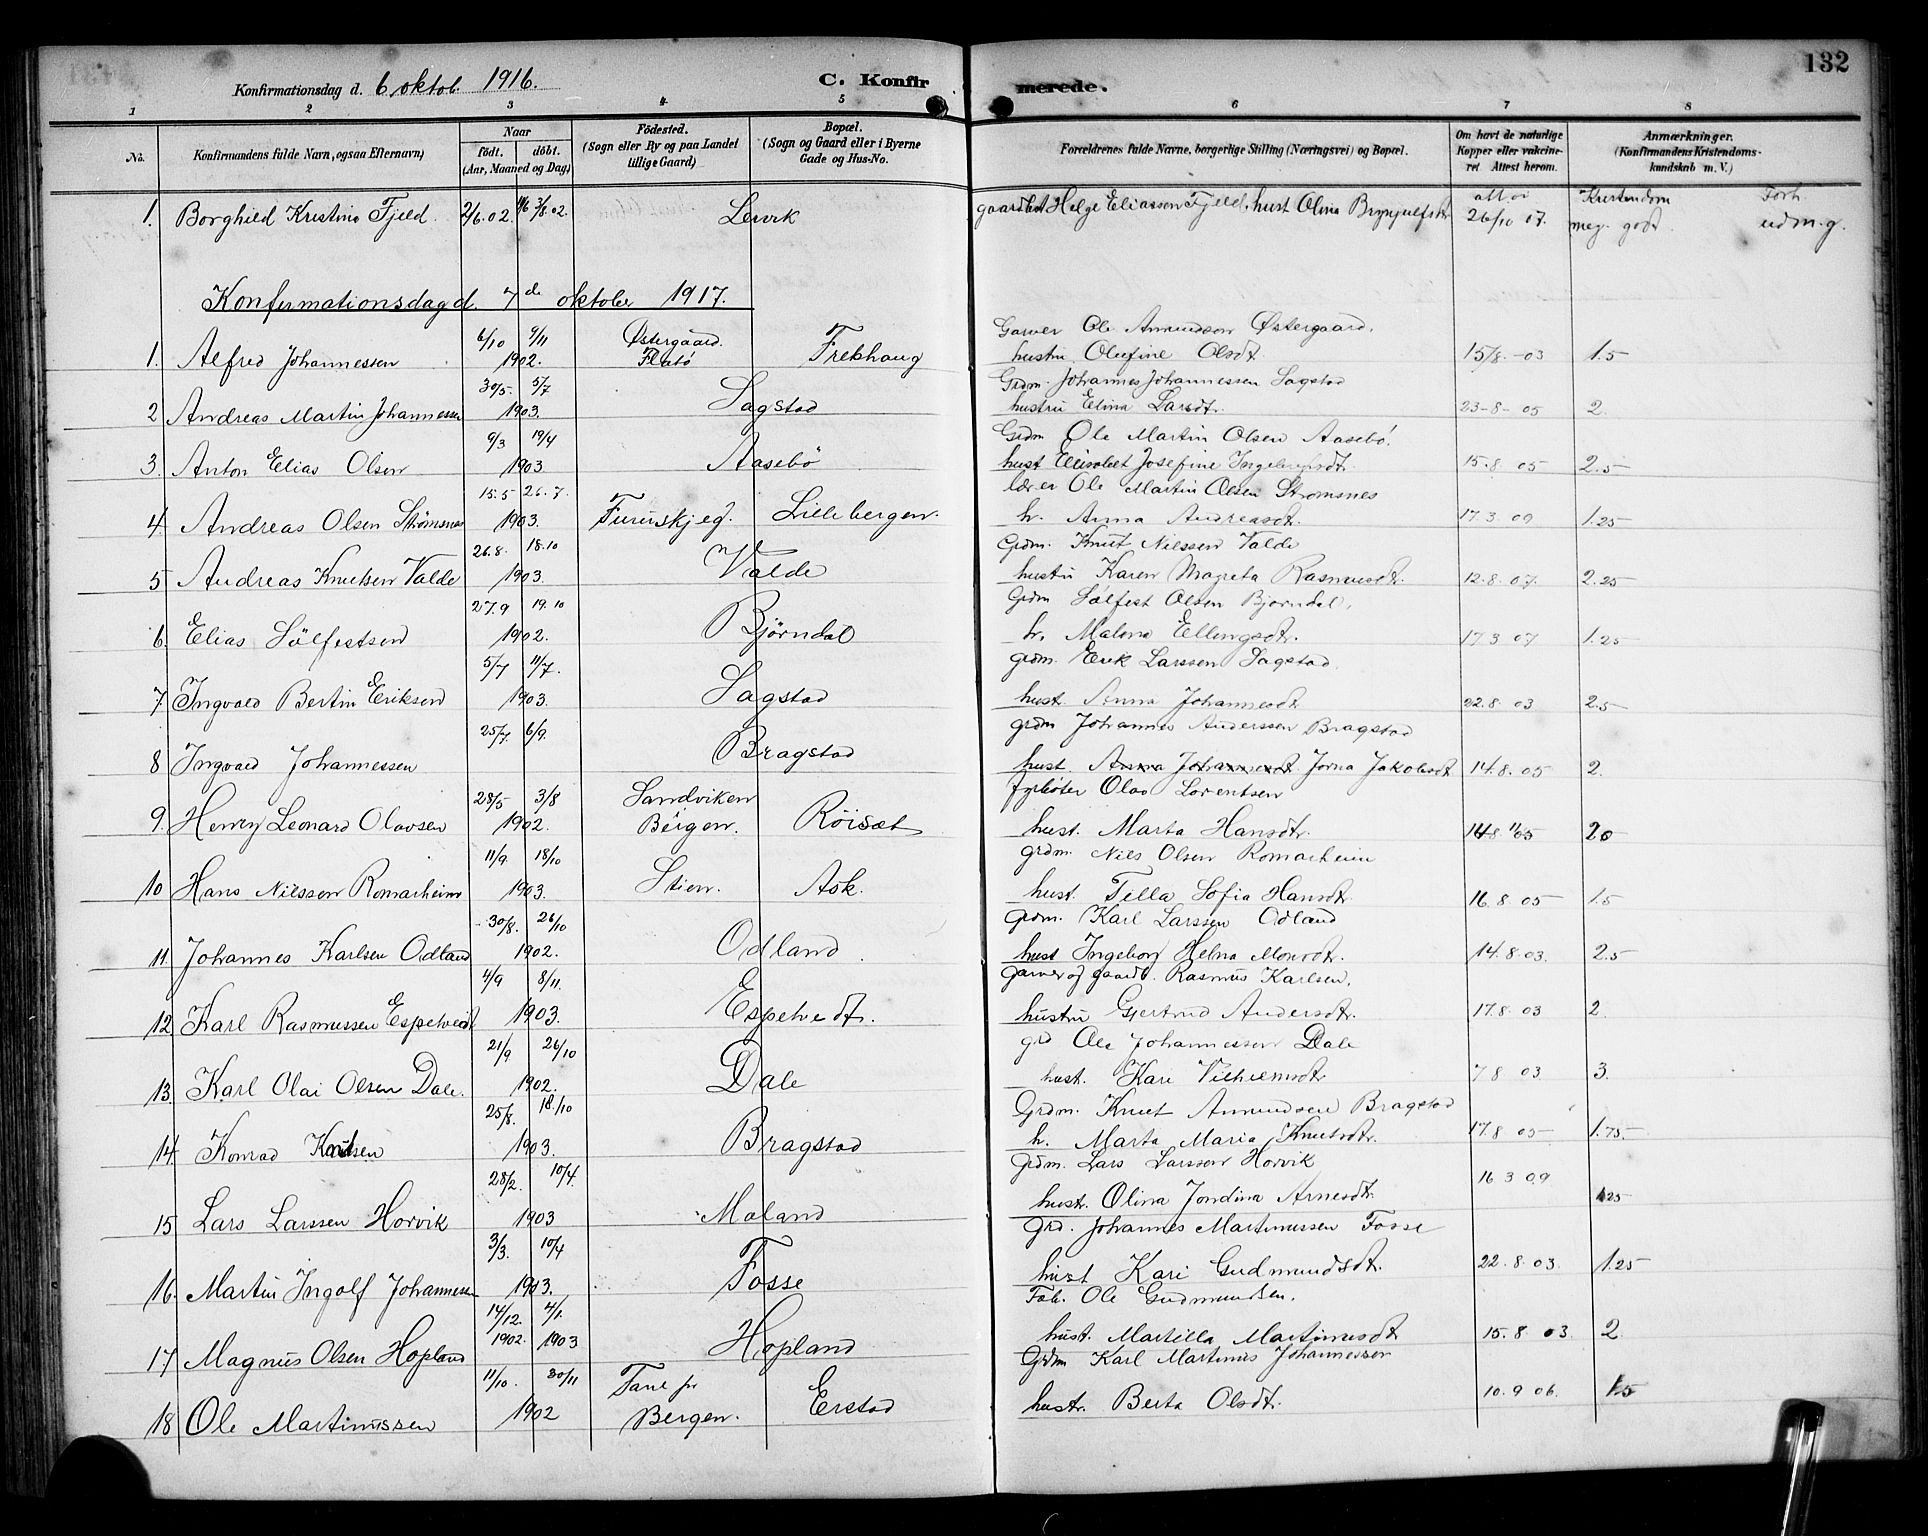 132
Konfirmationsdag d. 6 oktob. 1916.
C. Konfirmerede.
1 2 3 4 5 6 7 8
No. Konfirmandens fulde Navn, ogsaa Efternavn) Naar födt. döbt. (Aar, Maaned og Dag) Födested. (Sogn eller By og paa Landet tillige Gaard) Bopæl. (Sogn og Gaard eller i Byerne Gade og Hus-No. Forældrenes fulde Navne, borgerlige Stilling (Næringsvei) og Bopæl. Om havt de naturlige Kopper eller vakcineret. Attest herom. Anmærkninger. (Konfirmandens Kristendomskundskab m. V.)
1. Borghild Kristine Fjeld. 2/6.02. 3/8.02. Leivik Helge Eliassen Fjeld, hust Olina Brynjulfsdtr 26/10 07. Kristendom meg. godt. Forh. udm. g.
Konfirmationsdag d. 7de oktober 1917.
1. Alfred Johannessen 6/10 9/11 1902. Østergaard. Flatö Frekhaug Garver Ole Amundsen Østergaard, hustru Olufine Olsdt. 15/8.-03 1.5
2 Andreas Martin Johannessen 30/5. 5/7 1903. Sagstad Grdm. Johannes Johannessen Sagstad hustru Elina Larsdt. 23-8-05 2.
3. Anton Elias Olsen 9/3 19/4 1903. Aasebö Grdm Ole Martin Olsen Aasebö, hust Elisabet Josefine 15.8.05 2.5
4. Andreas Olsen Strömsnes 15.5 26.7. 1903. Furuskjeg. Lillebergen. lærer Ole Martin Olsen Strömsnes h. Anna Andreasdt. 17.3.09 1.25
5 Andreas Knutsen Valde 26.8. 18.10 1903. Valde Grdm. Knut Nilssen Valde hustru Karen Magreta Rasmusdtr. 12.8.07. 2.25
6. Elias Sölfestsen 27.9 19.10 1902. Björndal Grdm Sölfest Olsen Björndal, h. Malena Ellingsdtr. 17 3 07 1.25
7 Ingvald Bertin Eriksen 5/7 11/7. 1903. Sagstad grdm. Erik Larssen Sagstad. hust. Anna Johannesdt 22.8 03 2.5
8 Ingvald Johannessen 25/7. 6/9. Bragstad grdm Johannes Anderssen Bragstad hust. Anna Johannesdt. Jorna Jakobsdt 14.8.05 2.
9. Henry Leonard Olavsen 28/5 3/8 1902. Sandviken Bergen. Röisæt fyrböter Olav Lorentsen hust. Marta Hansdtr. 20
10 Hans Nilssen Romarheim 11/9 18/10 1903. Stien. Ask. grdm. Nils Olsen Romarheim hust. Tella Sofia Hansdtr 16.8 05 1.5
11. Johannes Karlsen Odland 30/8. 26/10 1902. Odland. grdm. Karl Larssen Odland hust Ingeborg Helena Monsdtr. 14.8.03. 2.5
12. Karl Rasmussen Espetveit 4/9 8/11. 1903. Espetvedt. Garver og gaardb. Rasmus Karlsen, hustru Gjertrud Andersdtr. 17.8 03 2.
13. Karl Olai Olsen Dale. 21/9 26/10 1902. Dale grd Ole Johannessen Dale hust. Kari Vilhelmsdtr 7 8 03 3.
14. Konrad Knutsen 25/8. 18/10 1903. Bragstad Grdm. Knut Amundsen Bragstad h. Marta Maria Knutsdtr. 17.8 05 1.75.
15 Lars Larssen Horvik 28/2. 10/4. 1903 Moland Grdm. Lars Larssen Horvik hust. Olina Jondina Arnesdtr. 16 3 09 1.25
16. Martin Ingolf Johannessen 3/3. 10/4 1903. Fosse Grd. Johannes Martinussen Fosse hust Kari Gudmundsdt. 22.8.03. 1.25
17 Magnus Olsen Hopland 14/12. 1902. 4/1. 1903 Hopland Fab. Ole Gudmundsen. hust. Martilla Martinusdt 15.8 03. 2
18 Ole Martinussen 11/10. 30/11 1902 Fane pr Bergen. Erstad Grdm Karl Martinus Johannessen hustr. Berta Olsdtr. 10.9 06. 1.5